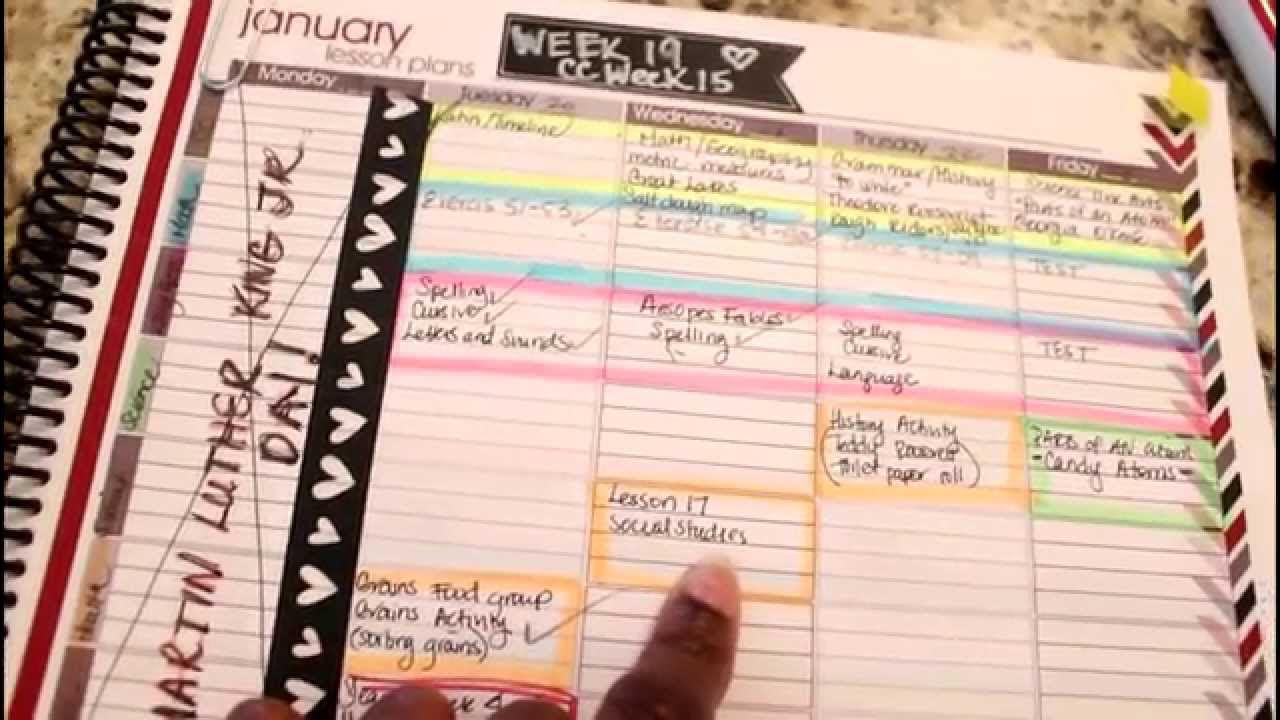 january
lesson plans
WEEK 19
CC Week 15
Monday
MARTIN LUTHER KING JR.
DAY!
Tuesday 20
/Timeline
Exercis 51-53
Spelling
Cursive
Letters and Sounds
Grains Food group
Grains Activity
(sorting grains)
Wednesday
Math/Geography
metric measures
Great Lakes
Salt dough map
Exercise
Aesopes Fables
Spelling
Lesson 17
Social Studies
Thursday
Grammar/History
"to write"
Theodore Roosevelt
Rough Riders
Spelling
Cursive
Language
History Activity
(Teddy
toilet paper roll)
Friday
Science Fine Arts
"Parts of an Atom"
Georgia O'Keefe
TEST
TEST
PARTS of AN atom
-Candy Atoms-
Science